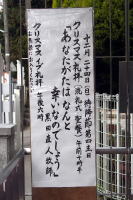 十二月二十四日(日)待降節第四主日
(洗礼式・聖餐)午前十時半
クリスマス礼拝
「あなたがたは なんと
幸いなのでしょう」
黒田直人牧師
クリスマスイブ礼拝 午後六時